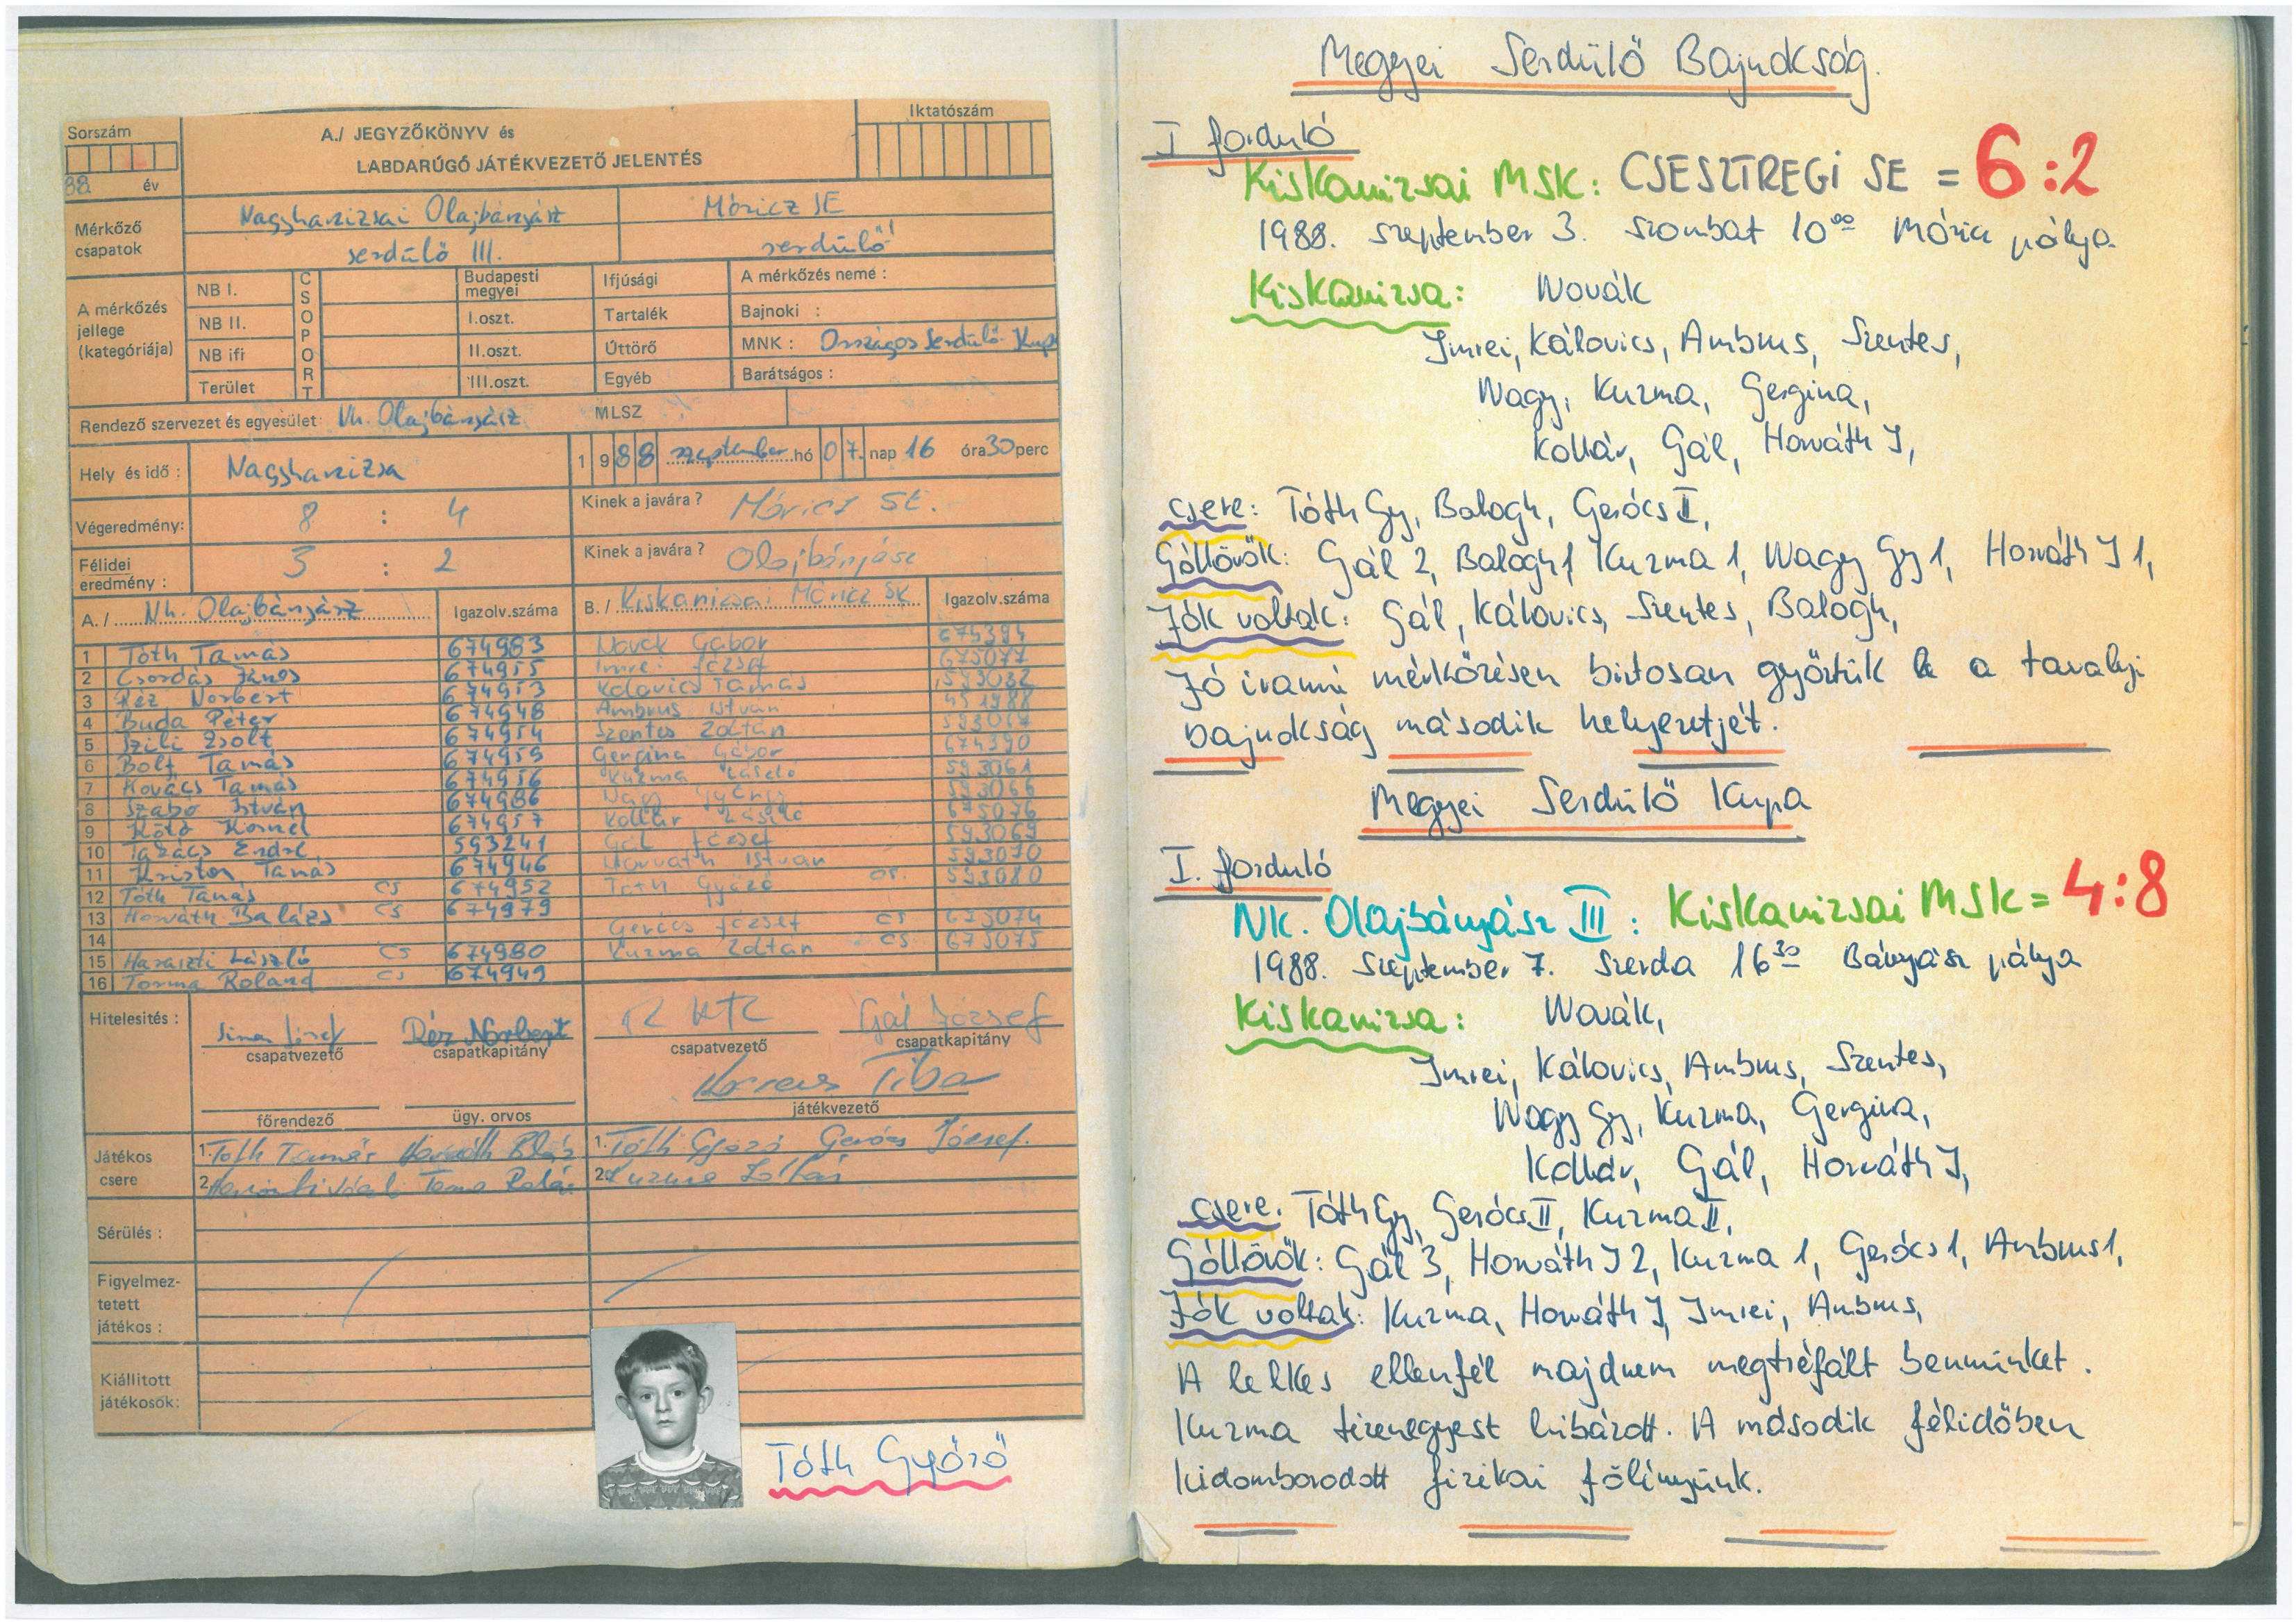 Sorszám
88 év
A./ JEGYZŐKÖNYV és
LABDARÚGÓ JÁTÉKVEZETŐ JELENTÉS
Iktatószám
Mérkőző csapatok
Nagykanizsai Olajbányász
serdülő III.
Móricz SE
serdülő
A mérkőzés jellege (kategóriája)
NB I.
NB II.
NB ifi
Terület
CSOPORT
Budapesti megyei
I.oszt.
II.oszt.
III.oszt.
Ifjúsági
Tartalék
Úttörő
Egyéb
A mérkőzés neme :
Bajnoki :
MNK : Országos Serdülő Kupa
Barátságos :
Rendező szervezet és egyesület: Nk. Olajbányász MLSZ
Hely és idő : Nagykanizsa 1988 szeptember hó 07. nap 16 óra 30 perc
Végeredmény: 8 : 4 Kinek a javára ? Móricz SE.
Félidei eredmény : 3 : 2 Kinek a javára ? Olajbányász
A./ Nk. Olajbányász Igazolv.száma B./ Kiskanizsai Móricz SK Igazolv.száma
1 Tóth Tamás 674983 Novák Gábor 675394
2 Csordás János 674955 Imrei József 675077
3 Réz Norbert 674953 Kálovics Tamás 593082
4 Buda Péter 674948 Ambrus István 451988
5 Szili Zsolt 674954 Szentes Zoltán 593067
6 Bolf Tamás 674959 Gergina Gábor 674390
7 Kovács Tamás 674956 Kuzma László 593061
8 Szabó István 674986 Nagy György 593066
9 Kornél 674957 Kollár László 675076
10 Takács Endre 593241 Gál József 593069
11 Kriston Tamás 674946 Horváth István 593070
12 Tóth Tamás cs 674952 Tóth Győző cs. 593080
13 Horváth Balázs cs 674979
14 Gerócs József cs 675074
15 Haraszti László cs 674980 Kuzma Zoltán cs 675075
16 Torma Roland cs 674949
Hitelesítés :
csapatvezető
Réz Norbert
csapatkapitány
csapatvezető
Gál József
csapatkapitány
játékvezető
főrendező
ügy. orvos
Játékos csere
1. Tóth Tamás Horváth Balázs
1. Tóth Győző Gerócs József.
2.
2. Kuzma Zoltán
Sérülés :
Figyelmez-
tetett
játékos :
Kiállított
játékosok:
Tóth Győző
Megyei Serdülő Bajnokság.
I forduló
Kiskanizsai MSK: CSESZTREGI SE = 6:2
1988. szeptember 3. szombat 10⁰⁰ Móricz pálya
Kiskanizsa: Novák
Imrei, Kálovics, Ambrus, Szentes,
Nagy, Kuzma, Gergina,
Kollár, Gál, Horváth I,
csere: Tóth Gy, Balogh, Gerócs II,
Góllövők: Gál 2, Balogh 1 Kuzma 1, Nagy Gy 1, Horváth I 1,
Jók voltak: Gál, Kálovics, Szentes, Balogh,
Jó iramú mérkőzésen biztosan győztük le a tavalyi
bajnokság második helyezetjét.
Megyei Serdülő Kupa
I. forduló
NK. Olajbányász III : Kiskanizsai MSK = 4:8
1988. Szeptember 7. Szerda 16³⁰ Bányász pálya
Kiskanizsa: Novák,
Imrei, Kálovics, Ambrus, Szentes,
Nagy Gy, Kuzma, Gergina,
Kollár, Gál, Horváth I,
csere. Tóth Gy, Gerócs II, Kuzma II,
Góllövők: Gál 3, Horváth I 2, Kuzma 1, Gerócs 1, Ambrus 1,
Jók voltak: Kuzma, Horváth I, Imrei, Ambrus,
A lelkes ellenfél majdnem megtréfált bennünket.
Kuzma tizenegyest hibázott. A második félidőben
kidomborodott fizikai fölényünk.